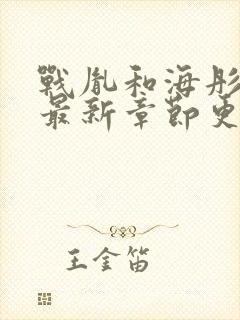 戰胤和海彤
最新章節更
王金笛